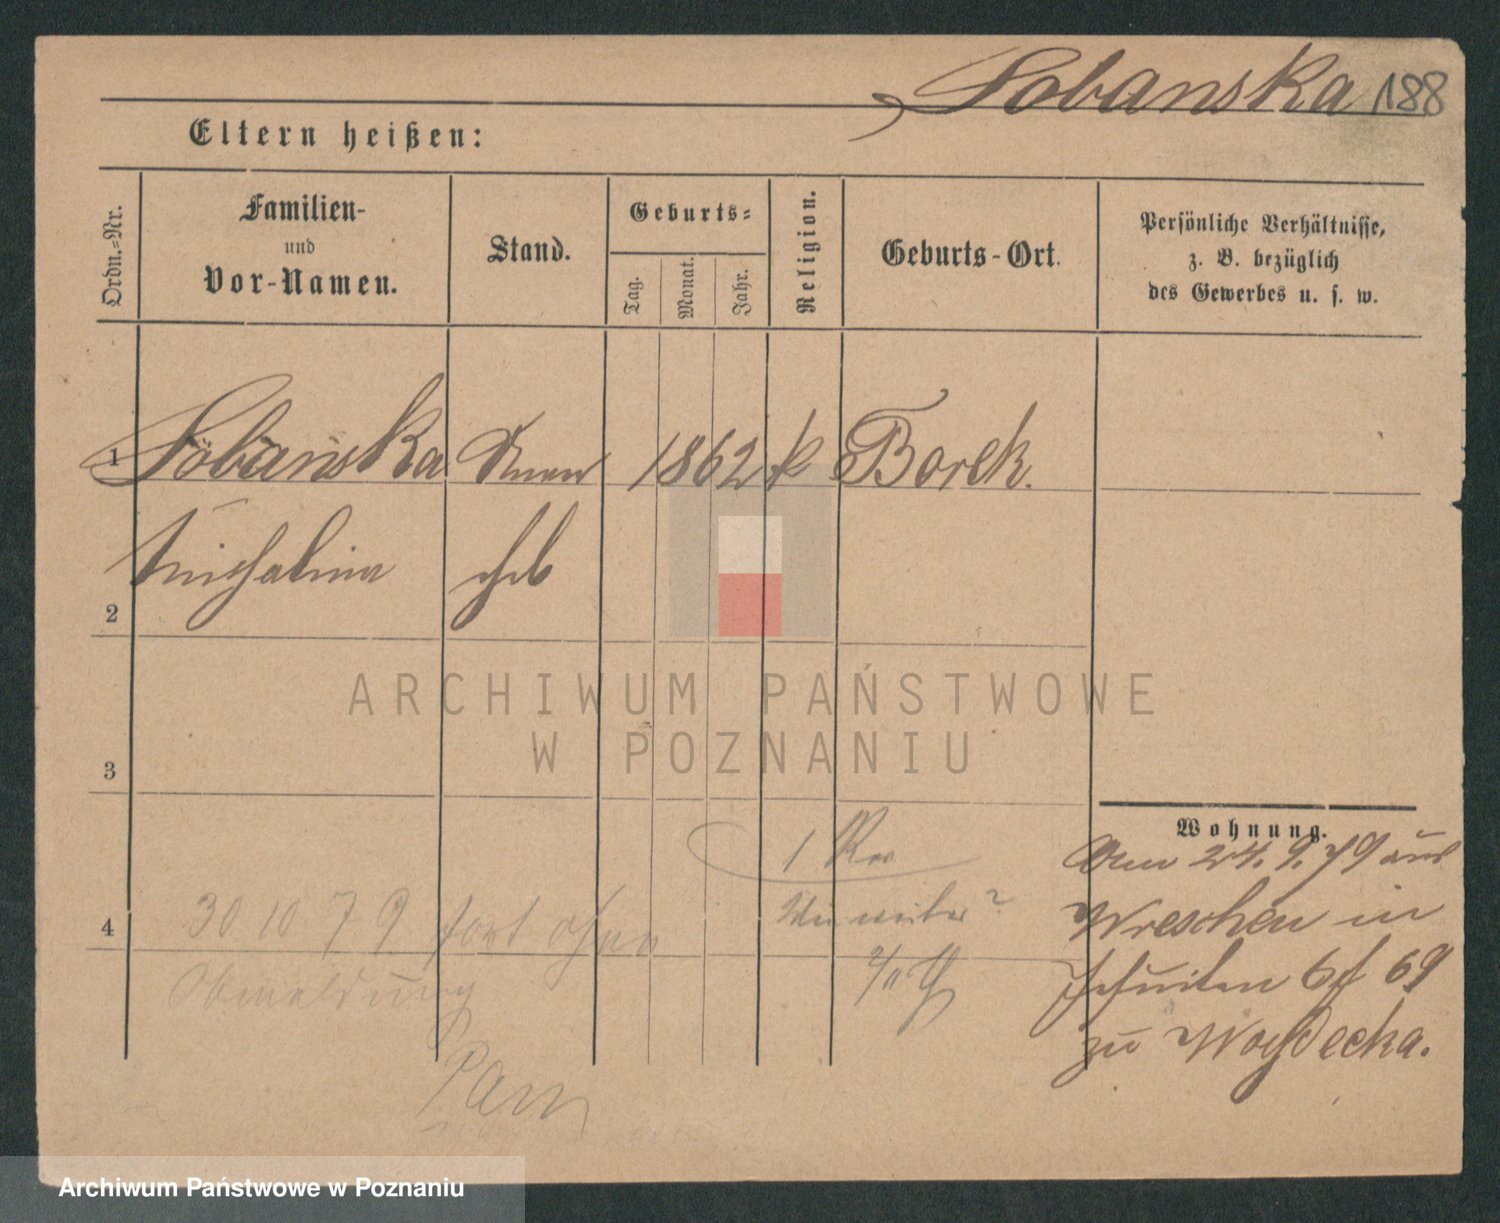 Sobanska 188
Eltern heißen:
Ordn.=Nr.
Familien-
und
Vor-Namen.
Stand.
Geburts=
Tag.
Monat.
Jahr.
Religion.
Geburts-Ort.
Persönliche Verhältnisse,
z. B. bezüglich
des Gewerbes u. s. w.
1
Sobanska
1862
k
Borek.
Michalina
2
ARCHIWUM PAŃSTWOWE
W POZNANIU
3
Wohnung.
Am 24. 9. 79 aus
Wreschen in
Jesuiten 69
zu
1
weiter?
4
30 10 79 fort ohne
Abmeldung
Archiwum Państwowe w Poznaniu